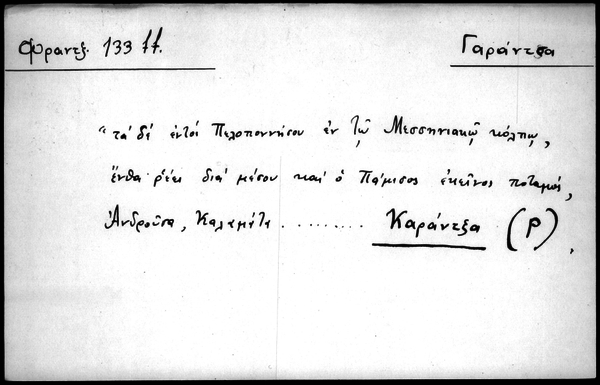 Φραντζ. 133 ff.
Γαράντζα
"τα' δέ ἐντός Πελοποννήσου ἐν τῷ Μεσσηνιακῷ κόλπῳ,
ἔνθα ῥέει διά μέσου καί ὁ Πάμισος ἐκεῖνος ποταμός,
Ἀνδροῦσα, Καλαμάτα .......... Καράντζα (Ρ),